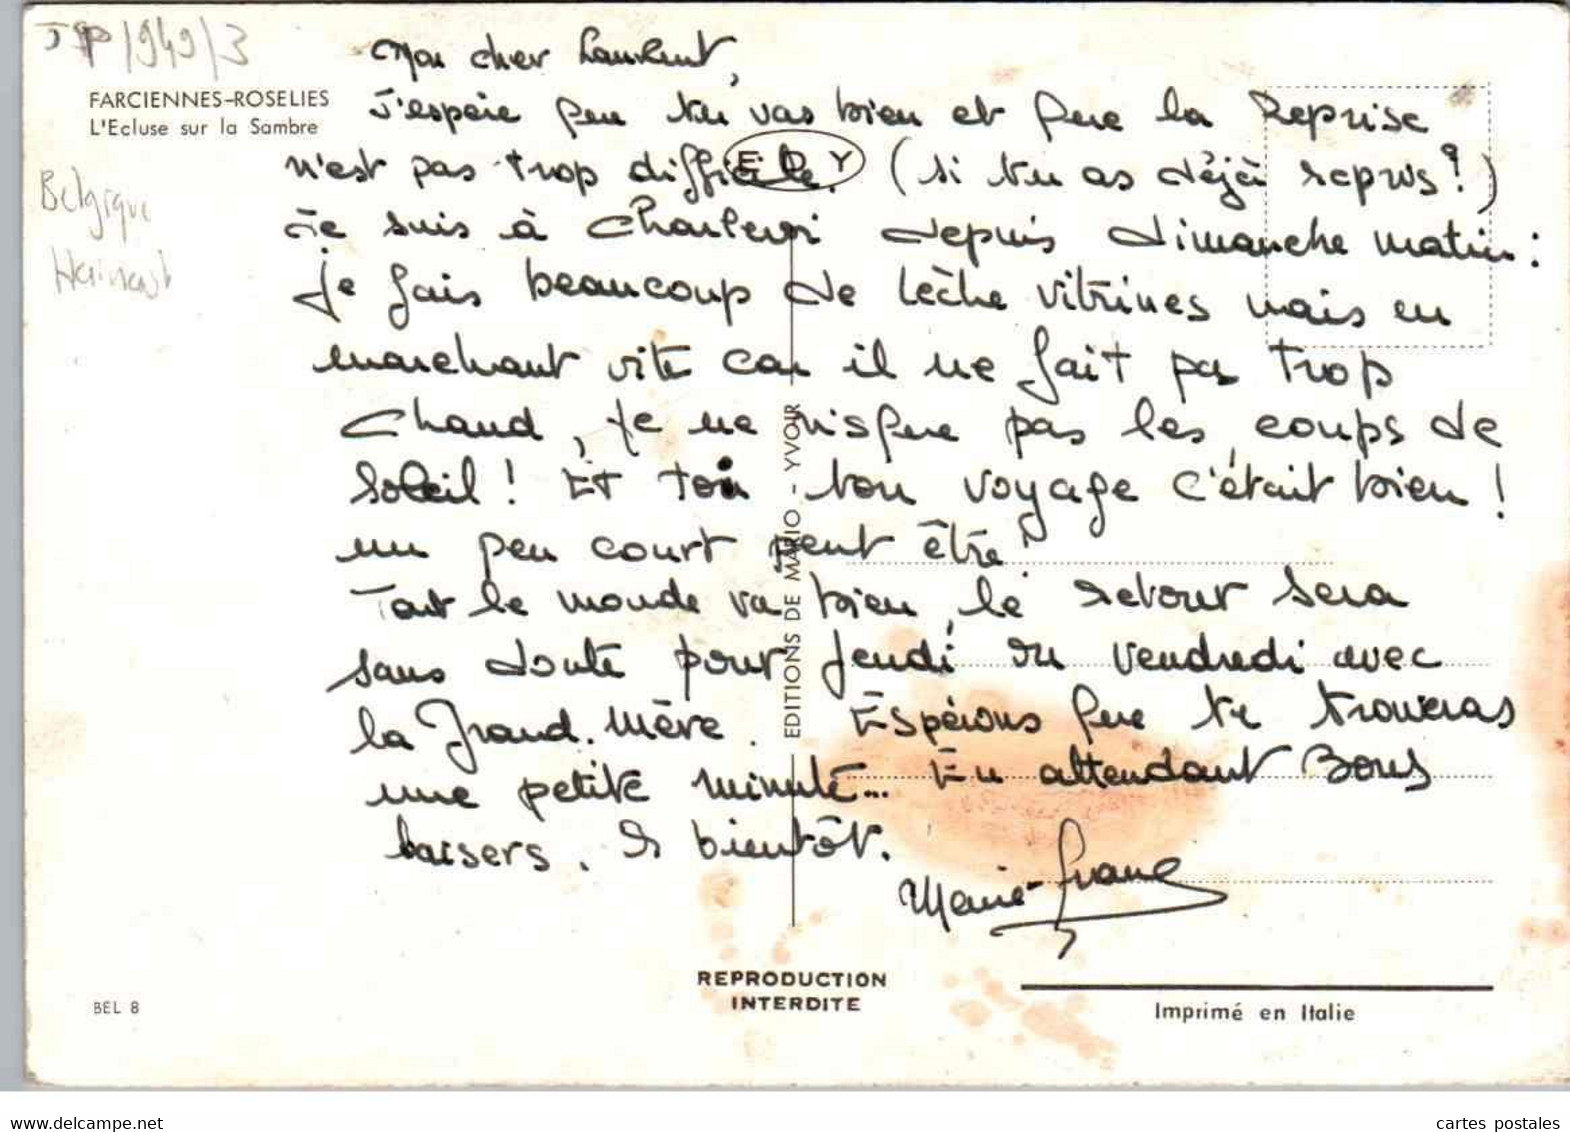 JP/949/3
FARCIENNES-ROSELIES
L'Ecluse sur la Sambre
Belgique
Hainaut
Mon cher Laurent,
J'espère que tu vas bien et que la Reprise
n'est pas trop difficile. (si tu as déjà repris?)
Je suis à Charleroi depuis dimanche matin:
je fais beaucoup de lèche vitrines mais en
marchant vite car il ne fait pas trop
chaud, je ne risque pas les coups de
soleil! Et toi ton voyage c'était bien!
un peu court peut être!
Tout le monde va bien, le retour sera
sans doute pour jeudi ou vendredi avec
la Grand.Mère. Espérons que tu trouveras
une petite minute... En attendant Bons
baisers. A bientôt.
Marie-France
EDY
EDITIONS DE MARIO - YVOIR
REPRODUCTION
INTERDITE
BEL 8
Imprimé en Italie
www.delcampe.net
cartes postales